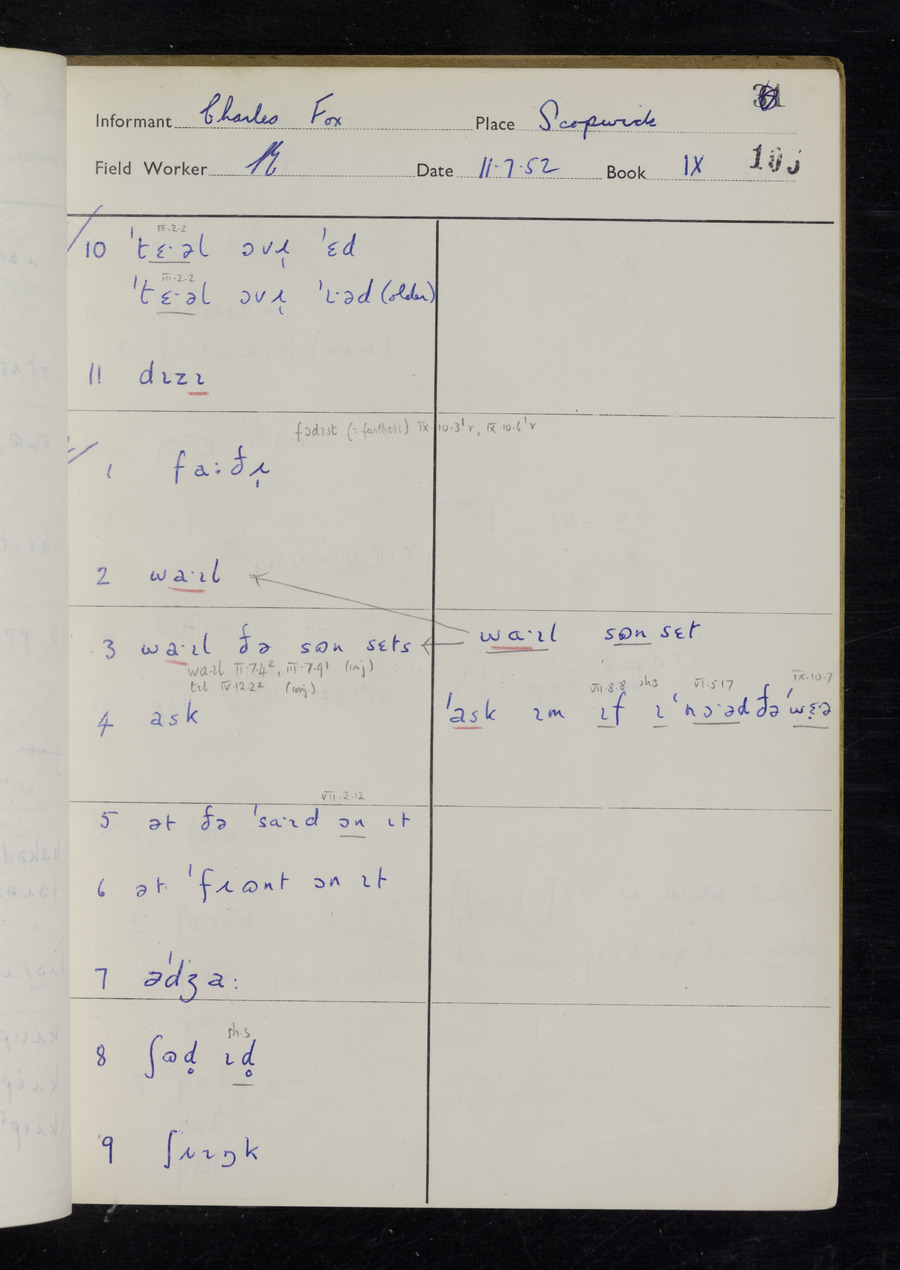 Informant Charles Fox Place Scopwick
Field Worker Date 11·7·52 Book IX 105
III·2·2
10 ˈtɛ·əl ɔvɹ̩ ˈɛd
III·2·2
ˈtɛ·əl ɔvɹ̩ ˈɪ·əd (older)
11 dɪzɪ
fədɪst (: farthest) IX·10·3'v, IX·10·6'v
1 fa:ðɹ̩
2 wa·ɪl
3 wa·ɪl ðə sɷn sɛts
wa·ɪl sɷn sɛt
wa·ɪl II·7·4², III·7·9¹ (inj)
tɪl IV·12·2² (inj)
4 ask
VII·8·8 sh·s VI·5·17 IX·10·7
ˈask ɪm ɪf ɪ ˈnɔ·əd ðə ˈwɛ̣ə
VII·2·12
5 ət ðə ˈsa·ɪd ɔn ɪt
6 ət ˈfɹɷnt ɔn ɪt
7 əˈdʒa:
sh·s
8 ʃɷd̥ ɪd̥
9 ʃɹɪŋk